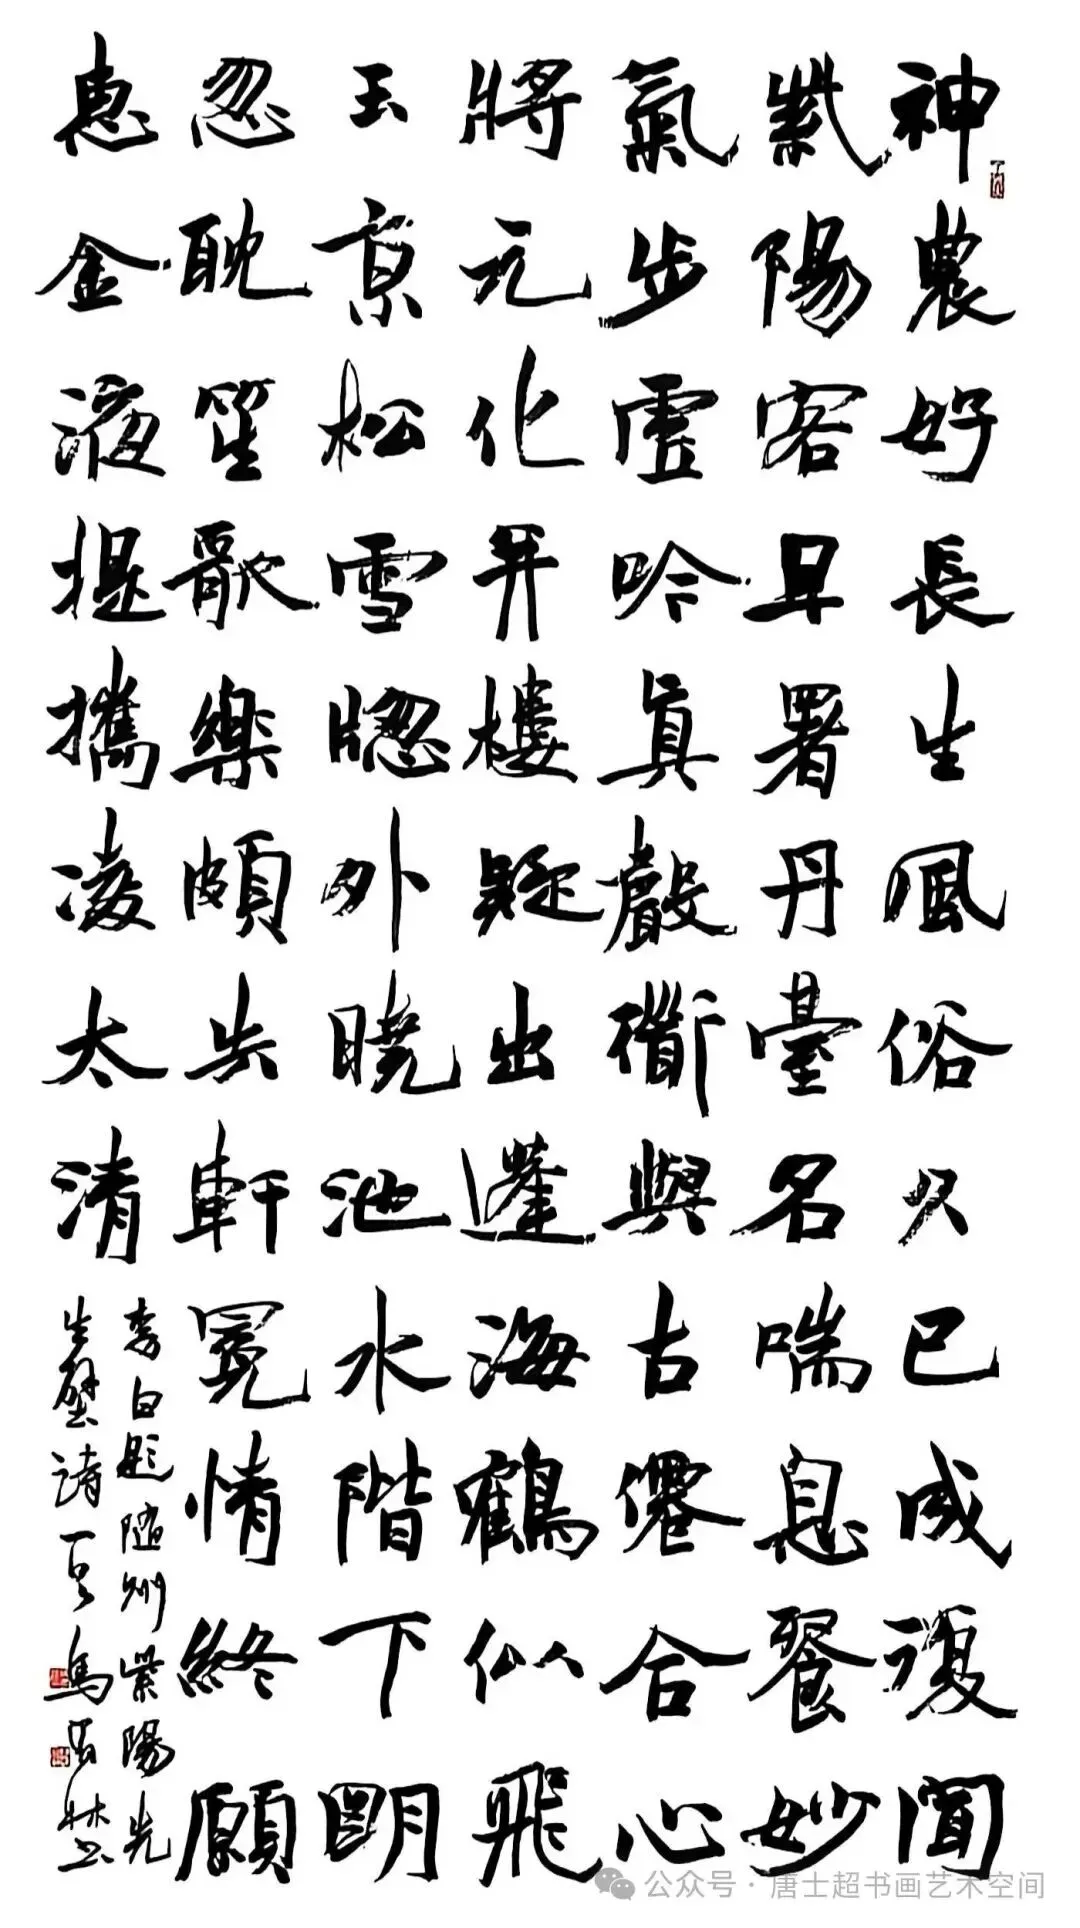 神農好長生風俗久已成復聞
紫陽客早署丹臺名喘息餐妙
氣步虛吟真聲衟與古僊合心
將元化并樓疑出蓬海鶴似飛
玉京松雪牕外曉池水階下明
忽耽笙歌樂頗失軒冕情終願
惠金液提攜凌太清
李白題隨州紫陽先
生壁詩一首馬
公众号 · 唐士超书画艺术空间